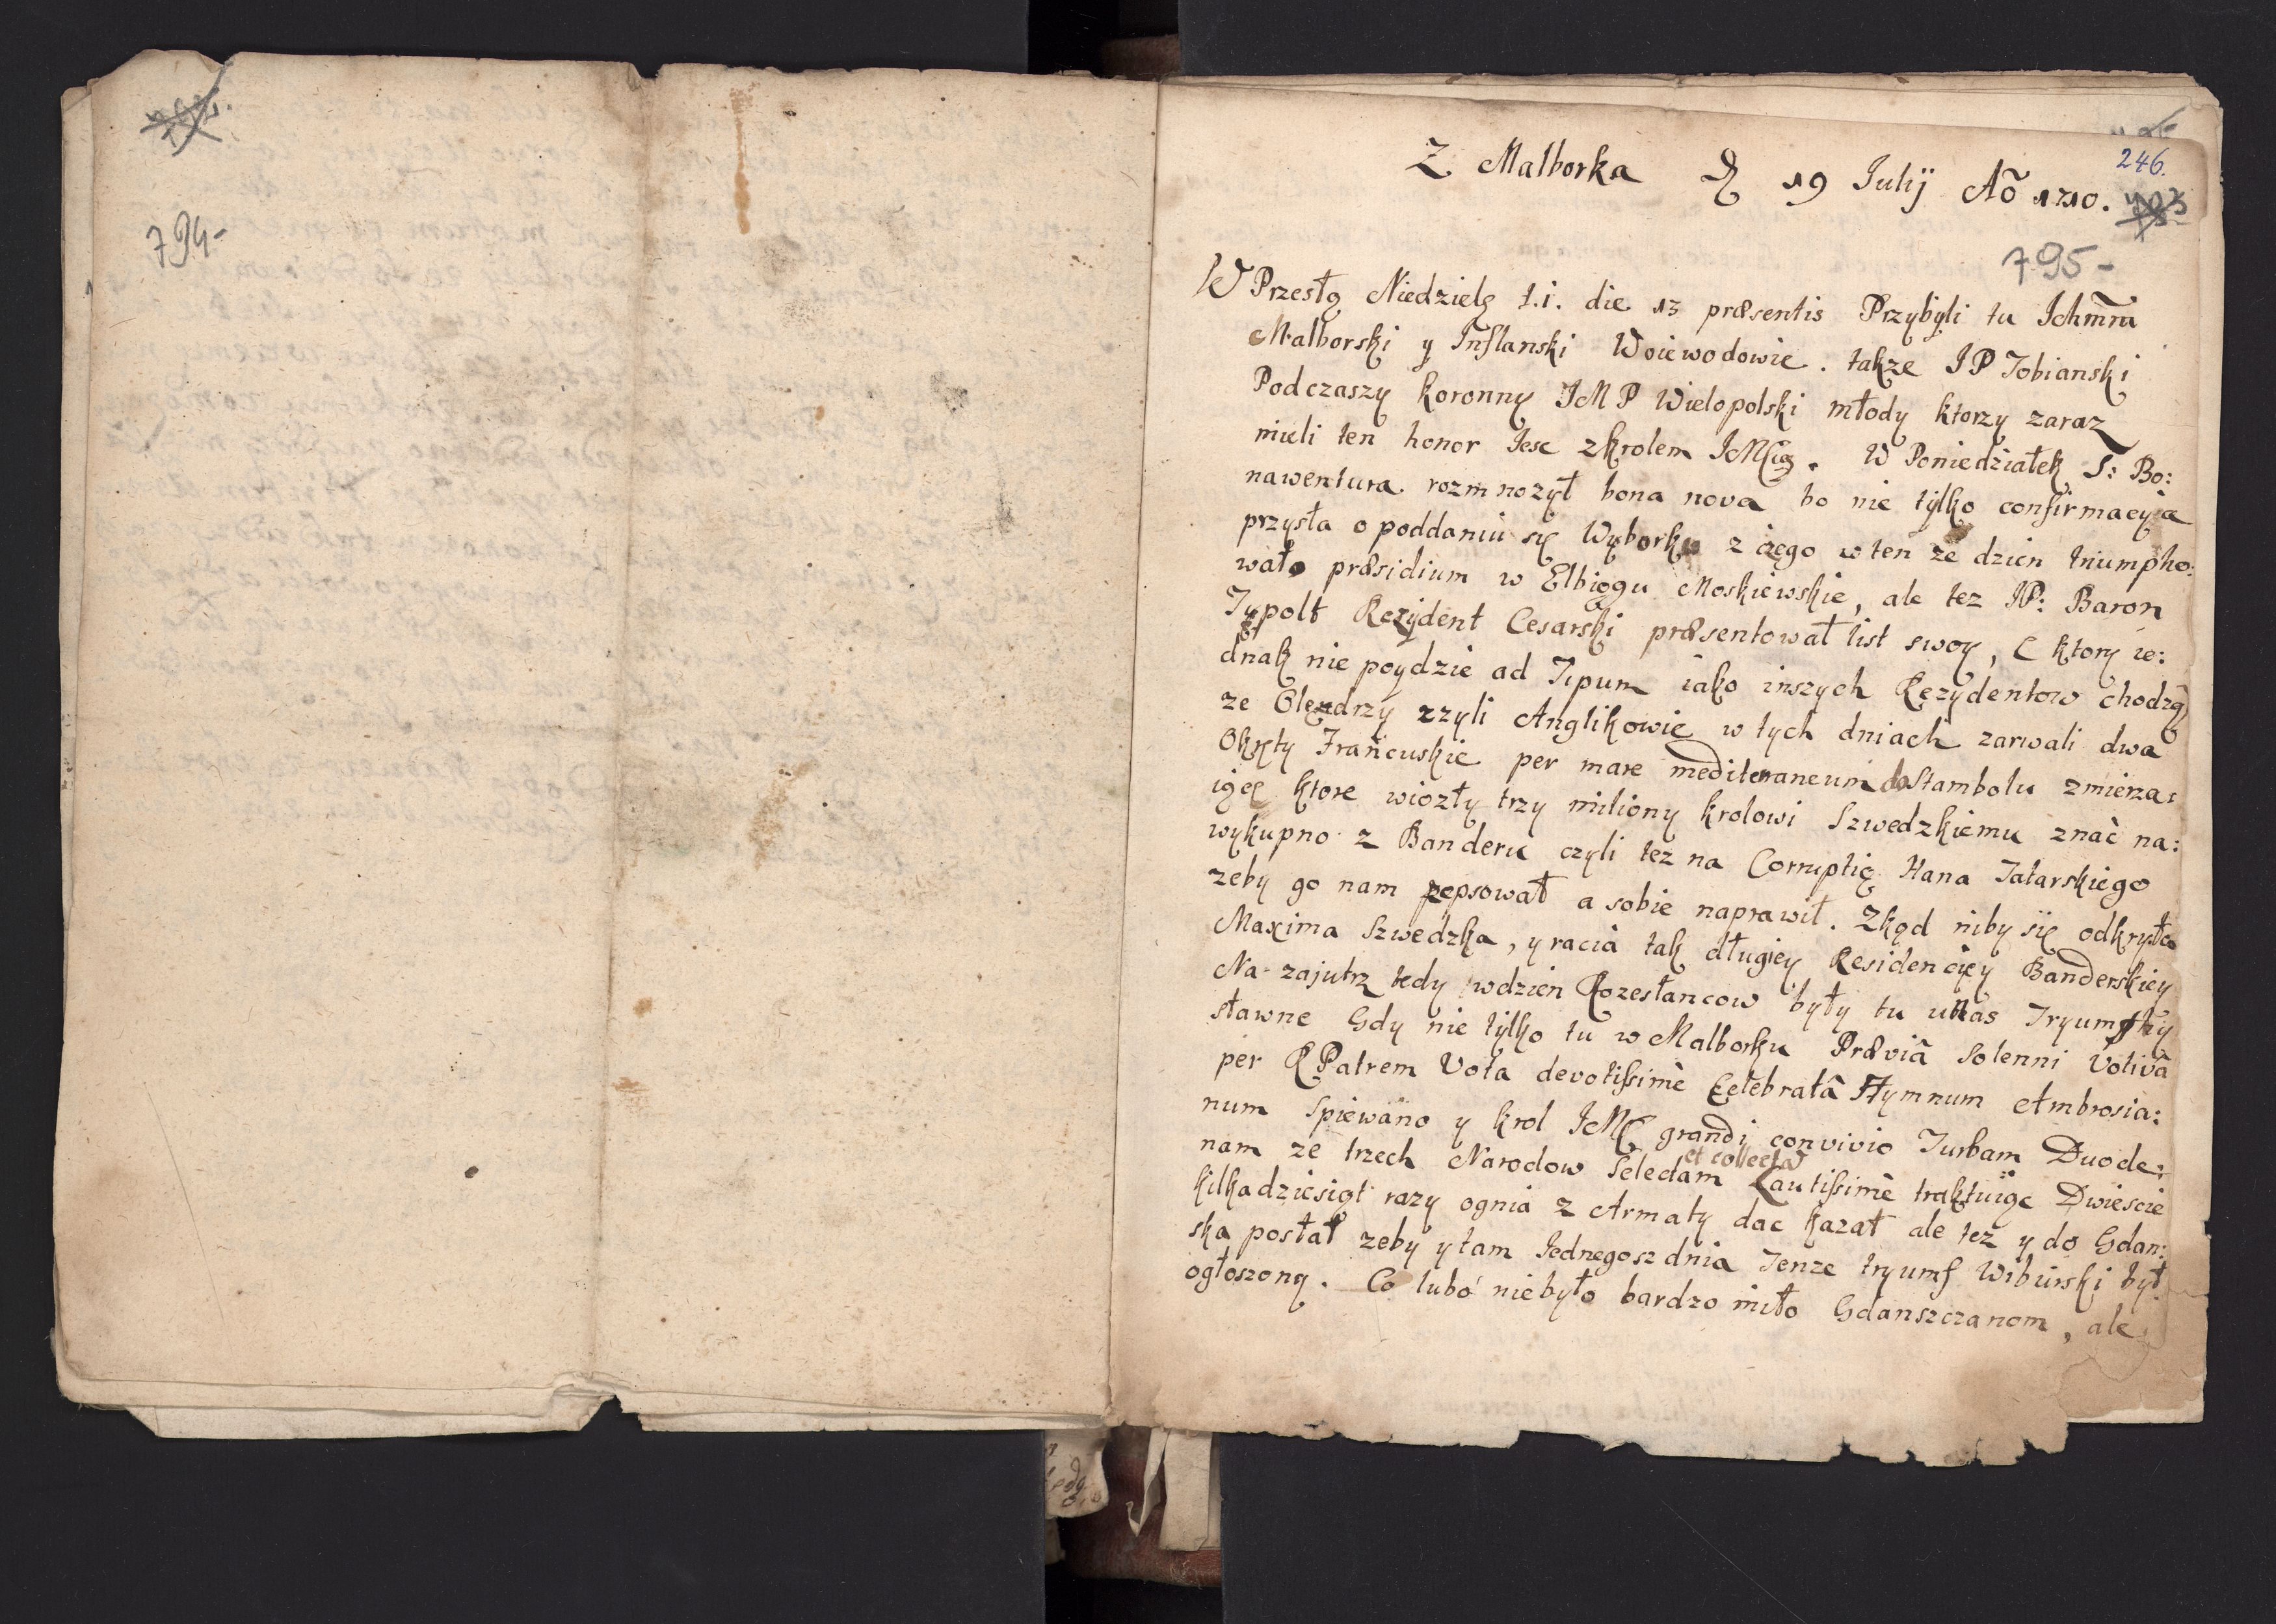 794-
246.
Z Malborka D 19 Iulij Aõ 1710.
795-
W Przesłą Niedzielę t.i. die 13 præsentis Przybyli tu Ichmm̃
Malborski y Inflanski Woiewodowie. takze IP Tobianski
Podczaszy koronny IMP Wielopolski młody ktorzy zaraz
mieli ten honor Iesc zkrolem IMCią. W Poniedziałek S: Bo:
nawentura rozmnozył bona nova bo nie tylko confirmacyia
przysła o poddaniu się Wyborku z czego w ten ze dzien tryumpho:
wało præsidium w Elbiągu Moskiewskie, ale tez IP: Baron
Typolt Rezydent Cesarski præsentował list swoy, C ktory ie:
dnak nie poydzie ad Tipum iako inszych Rezydentow chodzą)
ze Olendrzy czyli Anglikowie w tych dniach zarwali dwa
Okręty Francuskie per mare mediterraneum do Stambolu zmierza:
iące ktore wiozły trzy miliony krolowi Szwedzkiemu znać na:
wykupno z Banderu czyli tez na Corruptią Hana Tatarskiego
zeby go nam popsował a sobie naprawił. Zkąd niby się odkryła
Maxima Szwedzka, y racia tak długiey Residencyey Banderskiey
Na-zajutrz tedy wdzien Rozesłancow były tu unas Tryumfhy
sławne Gdy nie tylko tu w Malborku Præviâ Solenni Votivâ
per R Patrem Vota devotissimè Celebratâ Hymnum Ambrosia:
num Spiewano y krol IMC grandi convivio Turbam Duode:
nam ze trzech Narodow Selectam et collectã Lautissimè traktuiąc Dwiescie
kilkadziesiąt razy ognia z Armaty dac kazał ale tez y do Gdan:
ska posłał zeby y tam Iednegosz dnia Tenze tryumf Wiburski był
ogłoszony. Co lubó niebyło bardzo miło Gdanszczanom, ale